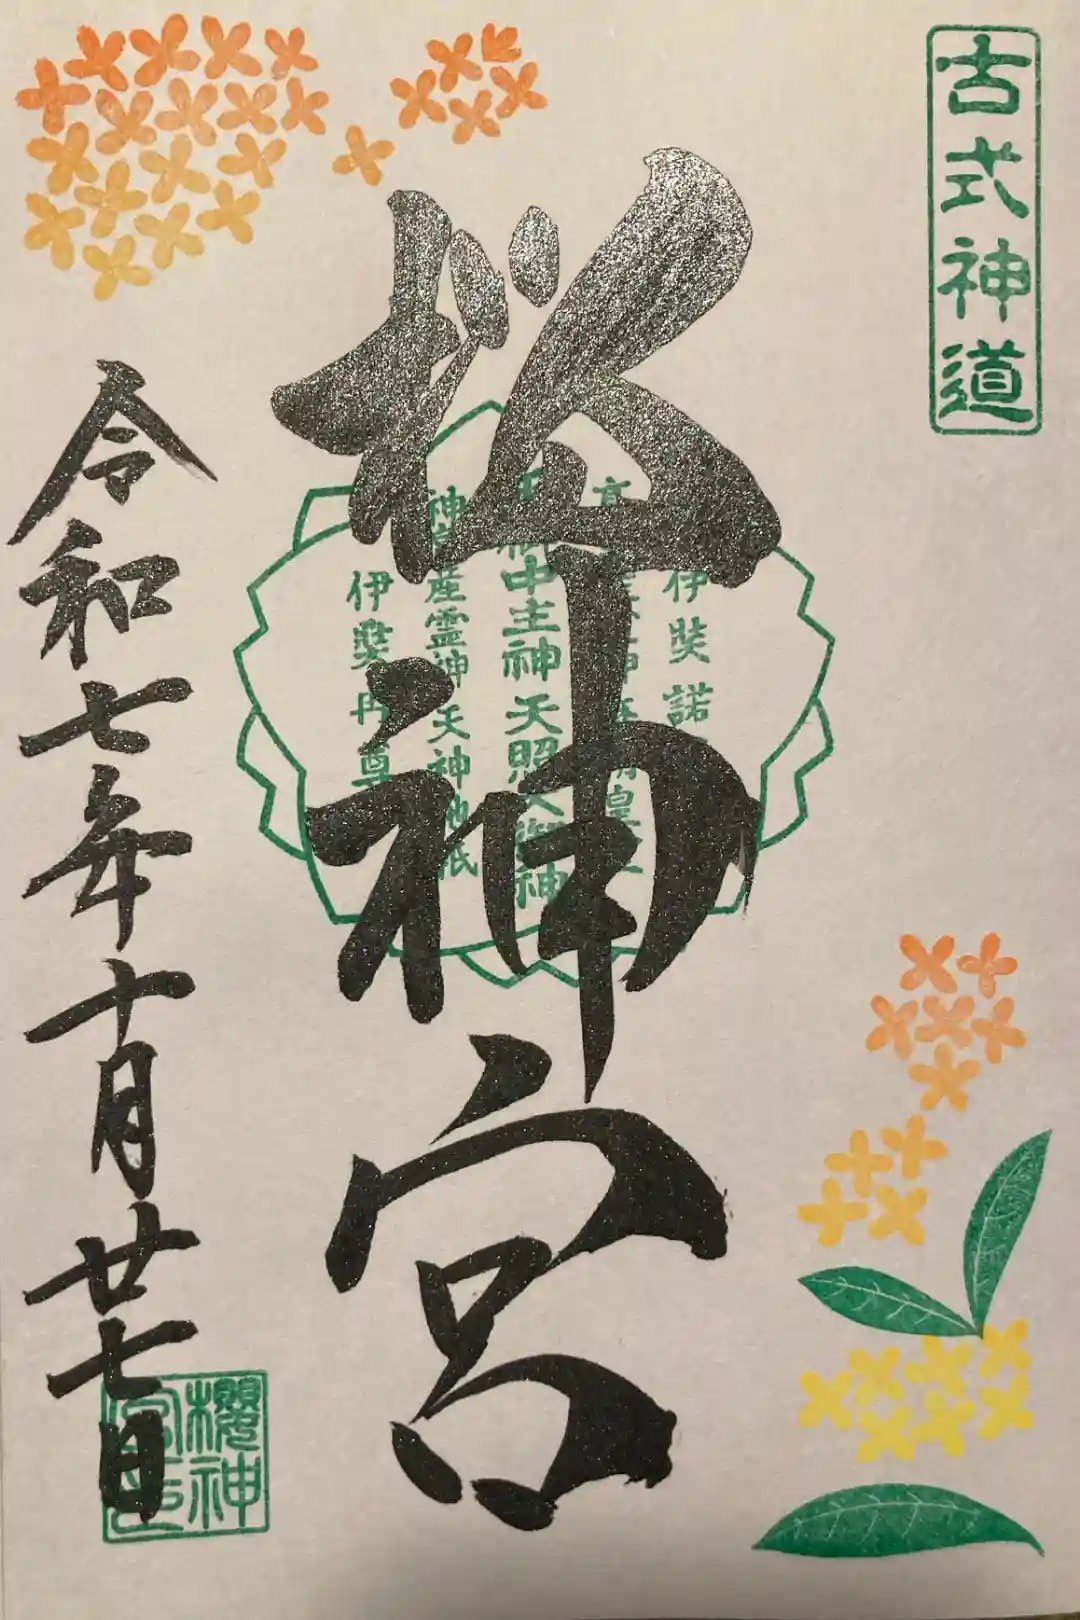 古式神道
桜神宮
伊奘諾
中主神天照大御神
神皇産霊神天神地祇
伊奘冉尊
令和七年十月廿七日
櫻神